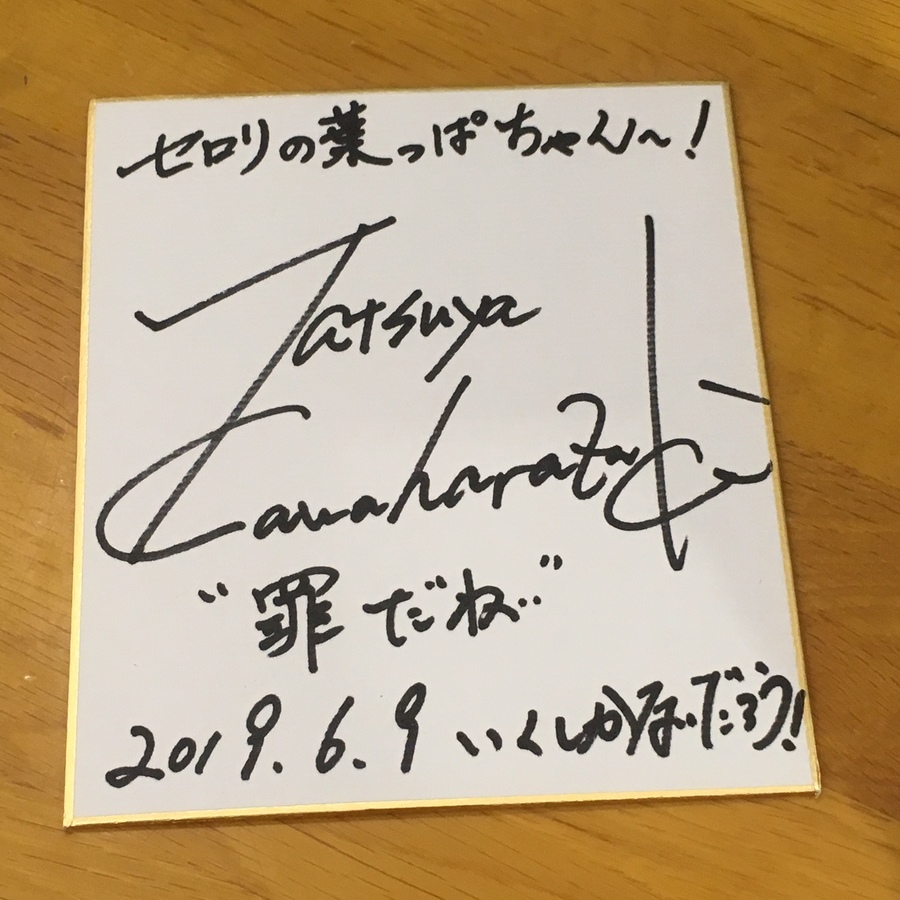 セロリの葉っぱちゃん～!
Tatsuya
Kawaharazuka
"罪だね‥"
2019.6.9 いくしかないだろう!